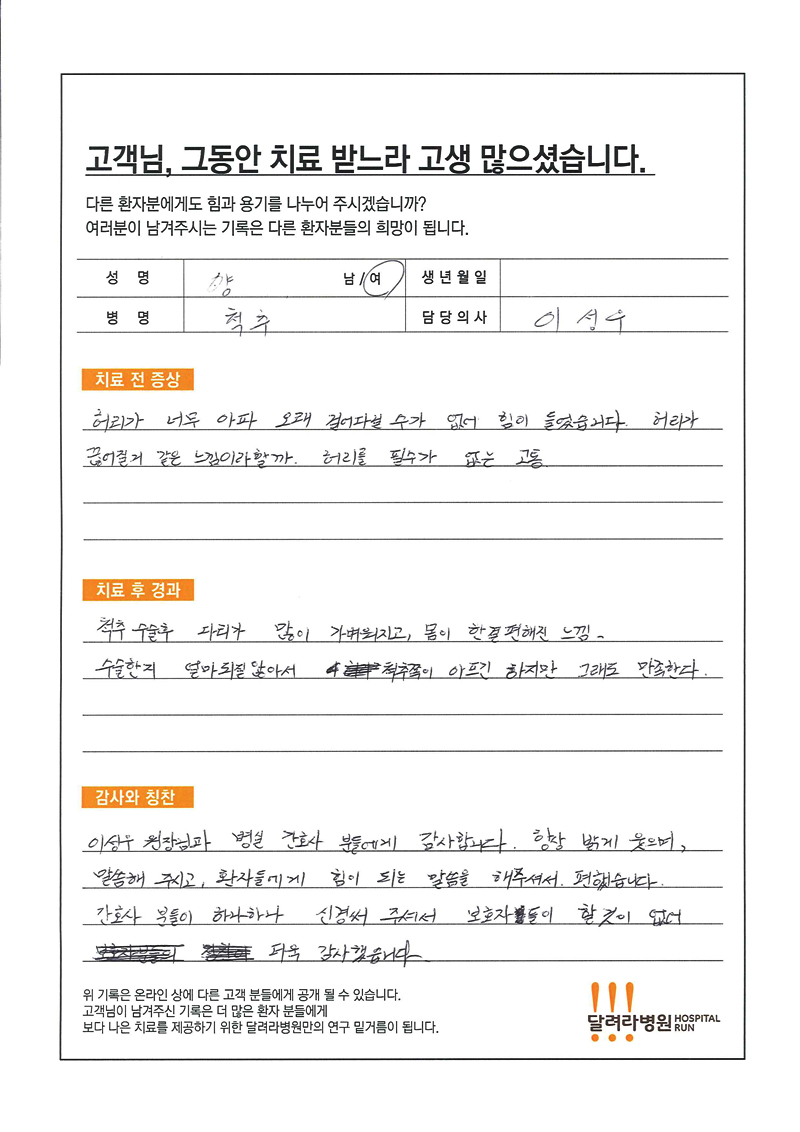 고객님, 그동안 치료 받느라 고생 많으셨습니다.
다른 환자분에게도 힘과 용기를 나누어 주시겠습니까?
여러분이 남겨주시는 기록은 다른 환자분들의 희망이 됩니다.
성 명 양 남 / 여 생년월일
병 명 척추 담당의사 이성우
치료 전 증상
허리가 너무 아파 오래 걸어다닐 수가 없어 힘이 들었습니다. 허리가
끊어질거 같은 느낌이라할까. 허리를 필수가 없는 고통
치료 후 경과
척추 수술후 다리가 많이 가벼워지고, 몸이 한결 편해진 느낌~
수술한지 얼마되질 않아서 척추쪽이 아프긴 하지만 그래도 만족한다.
감사와 칭찬
이성우 원장님과 병실 간호사 분들에게 감사합니다. 항상 밝게 웃으며,
말씀해 주시고, 환자들에게 힘이 되는 말씀을 해주셔서. 편했습니다.
간호사 분들이 하나하나 신경써 주셔서 보호자들이 할 것이 없어
더욱 감사했습니다
위 기록은 온라인 상에 다른 고객 분들에게 공개 될 수 있습니다.
고객님이 남겨주신 기록은 더 많은 환자 분들에게
보다 나은 치료를 제공하기 위한 달려라병원만의 연구 밑거름이 됩니다.
달려라병원 HOSPITAL RUN